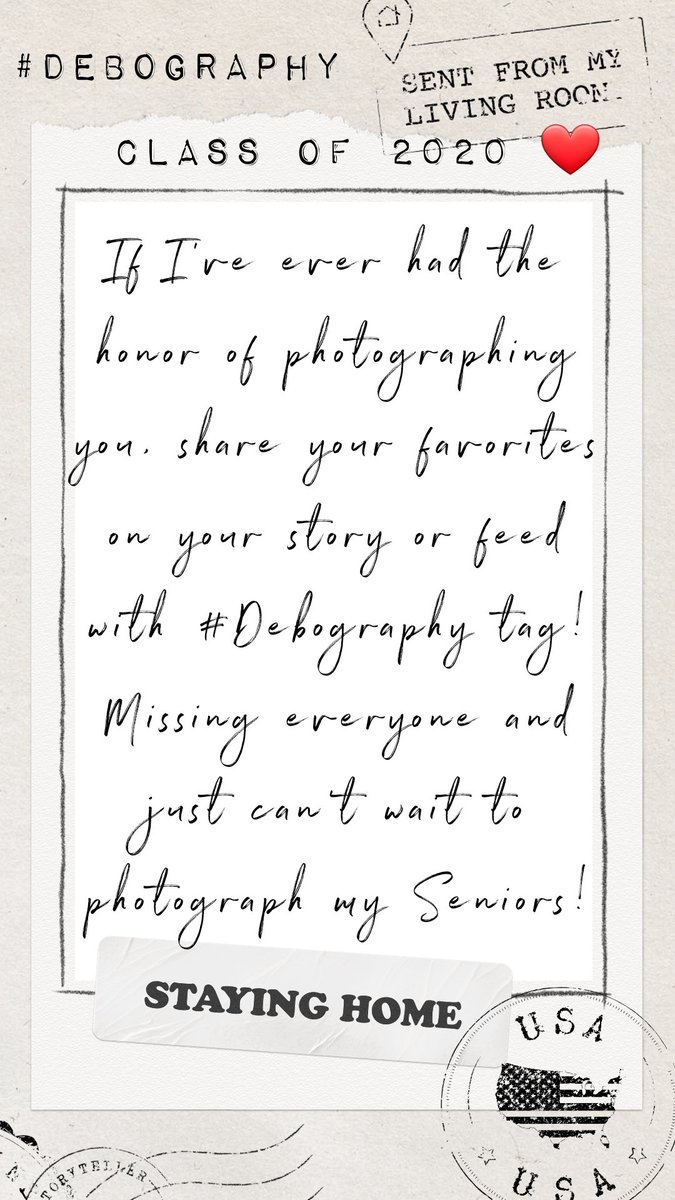 #DEBOGRAPHY
SENT FROM MY
LIVING ROOM.
CLASS OF 2020 ❤️
If I've ever had the
honor of photographing
you, share your favorites
on your story or feed
with #Debography tag!
Missing everyone and
just can't wait to
photograph my Seniors!
STAYING HOME
USA
USA
STORYTELLER